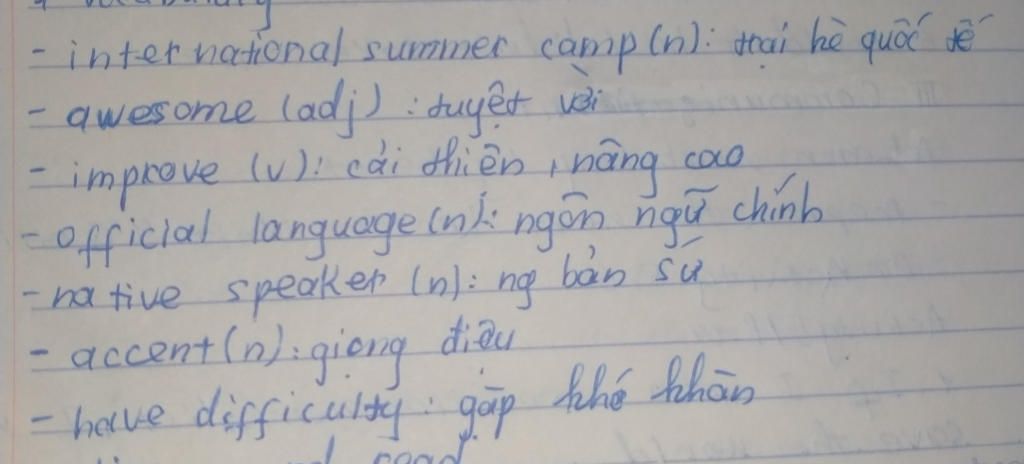 vocabulary
- international summer camp (n): trại hè quốc tế
- awesome (adj): tuyệt vời
- improve (v): cải thiện, nâng cao
- official language (n): ngôn ngữ chính
- native speaker (n): ng bản sứ
- accent (n): giọng điệu
- have difficulty: gặp khó khăn
road